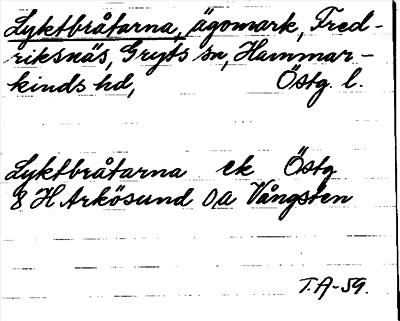 Lyktbråtarna, ägomark, Fred-
riksnäs, Gryts sn, Hammar-
kinds hd, Östg. l.
Lyktbråtarna ek Östg
8 H Arkösund 0a Vångsten
T.A-59.